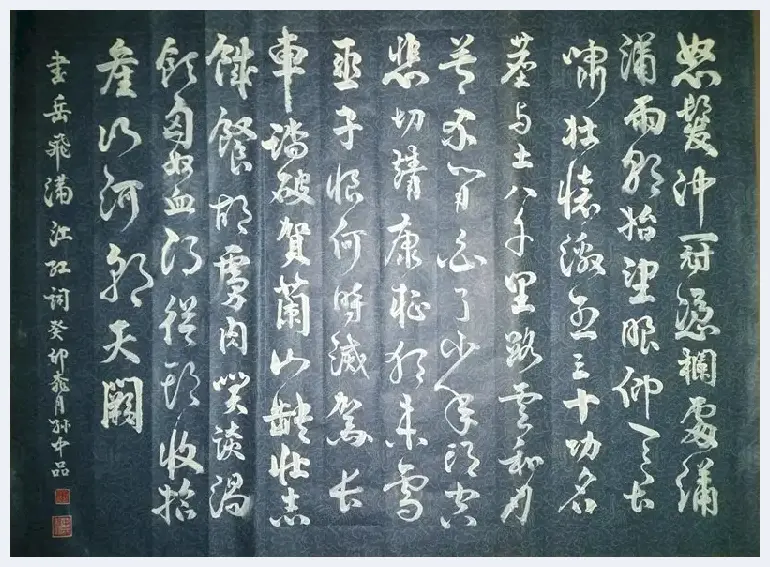 怒髮沖冠憑欄處瀟
瀟雨歇抬望眼仰天長
嘯壯懷激烈三十功名
塵与土八千里路雲和月
莫等閑白了少年頭空
悲切靖康恥猶未雪
臣子恨何時滅駕長
車踏破賀蘭山缺壯志
饑餐胡虜肉笑談渴
飲匈奴血待從頭收拾
舊山河朝天闕
書岳飛滿江紅詞癸卯月孫中品